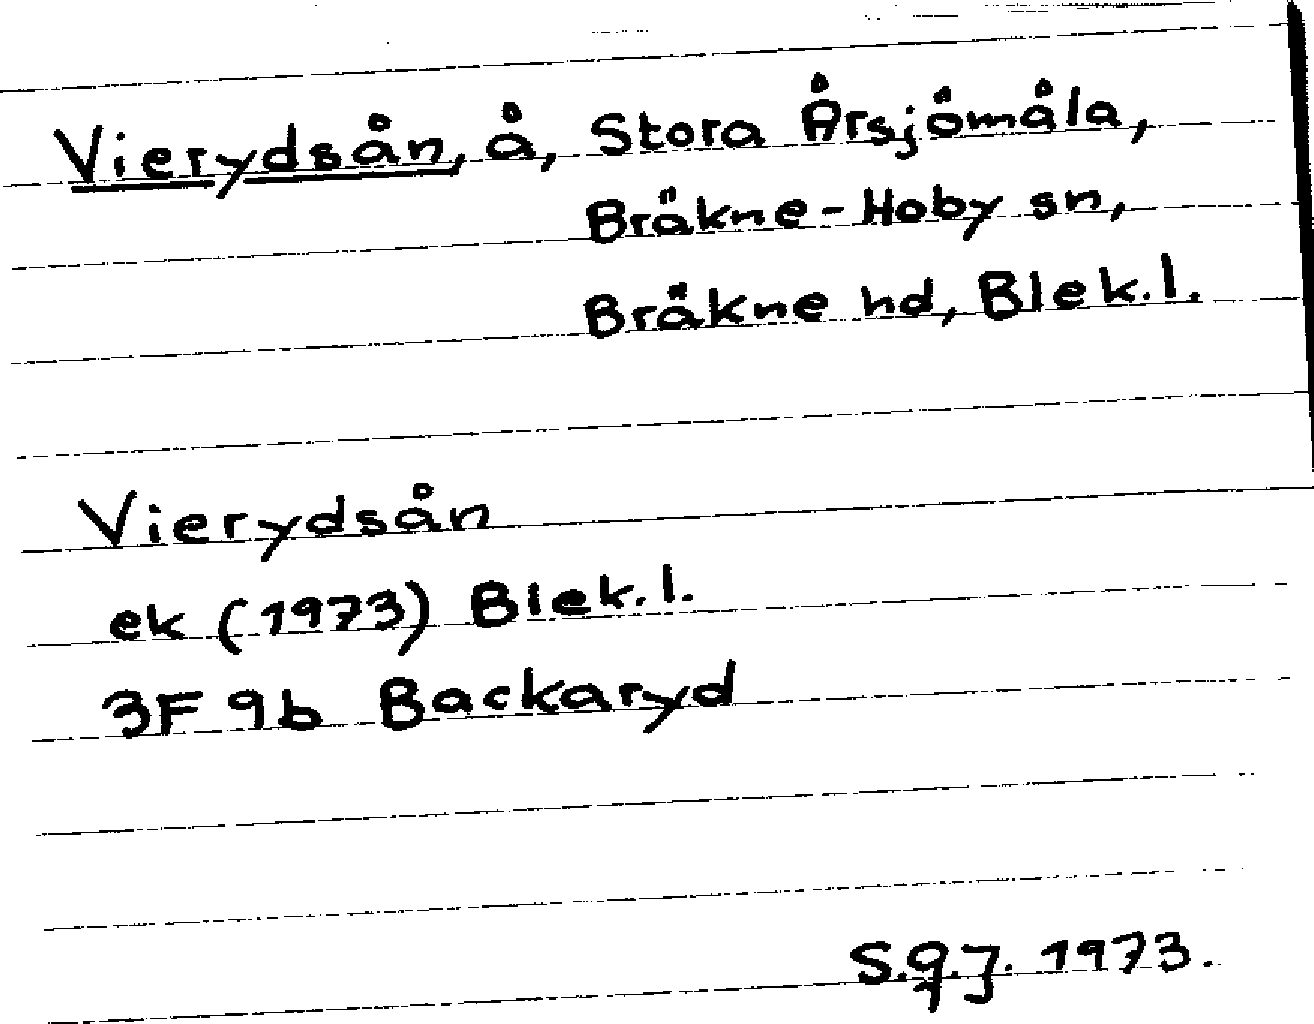 Vierydsån, å, Stora Årsjömåla,
Bräkne-Hoby sn,
Bräkne hd, Blek.l.
Vierydsån
ek (1973) Blek.l.
3F 9b Backaryd
S.g.J. 1973.